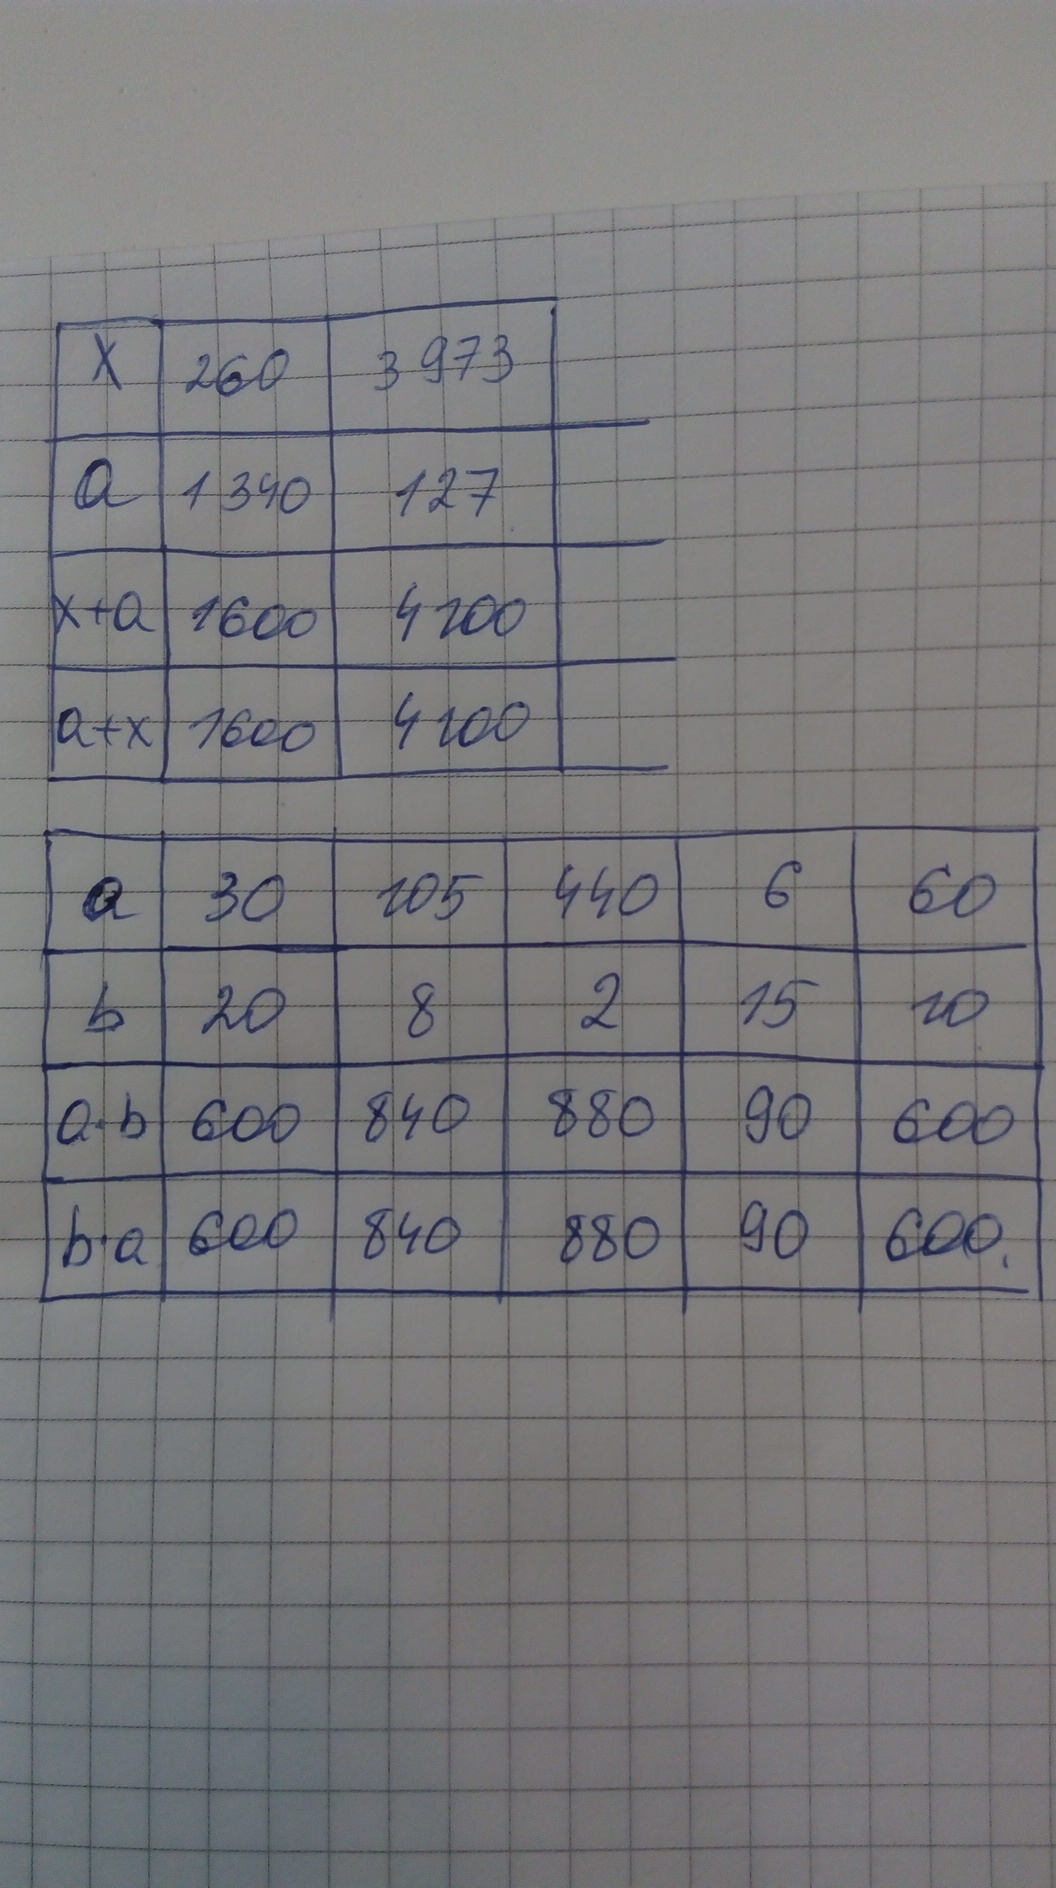 x 260 3973
a 1340 127
x+a 1600 4100
a+x 1600 4100
a 30 105 440 6 60
b 20 8 2 15 10
a·b 600 840 880 90 600
b·a 600 840 880 90 600.